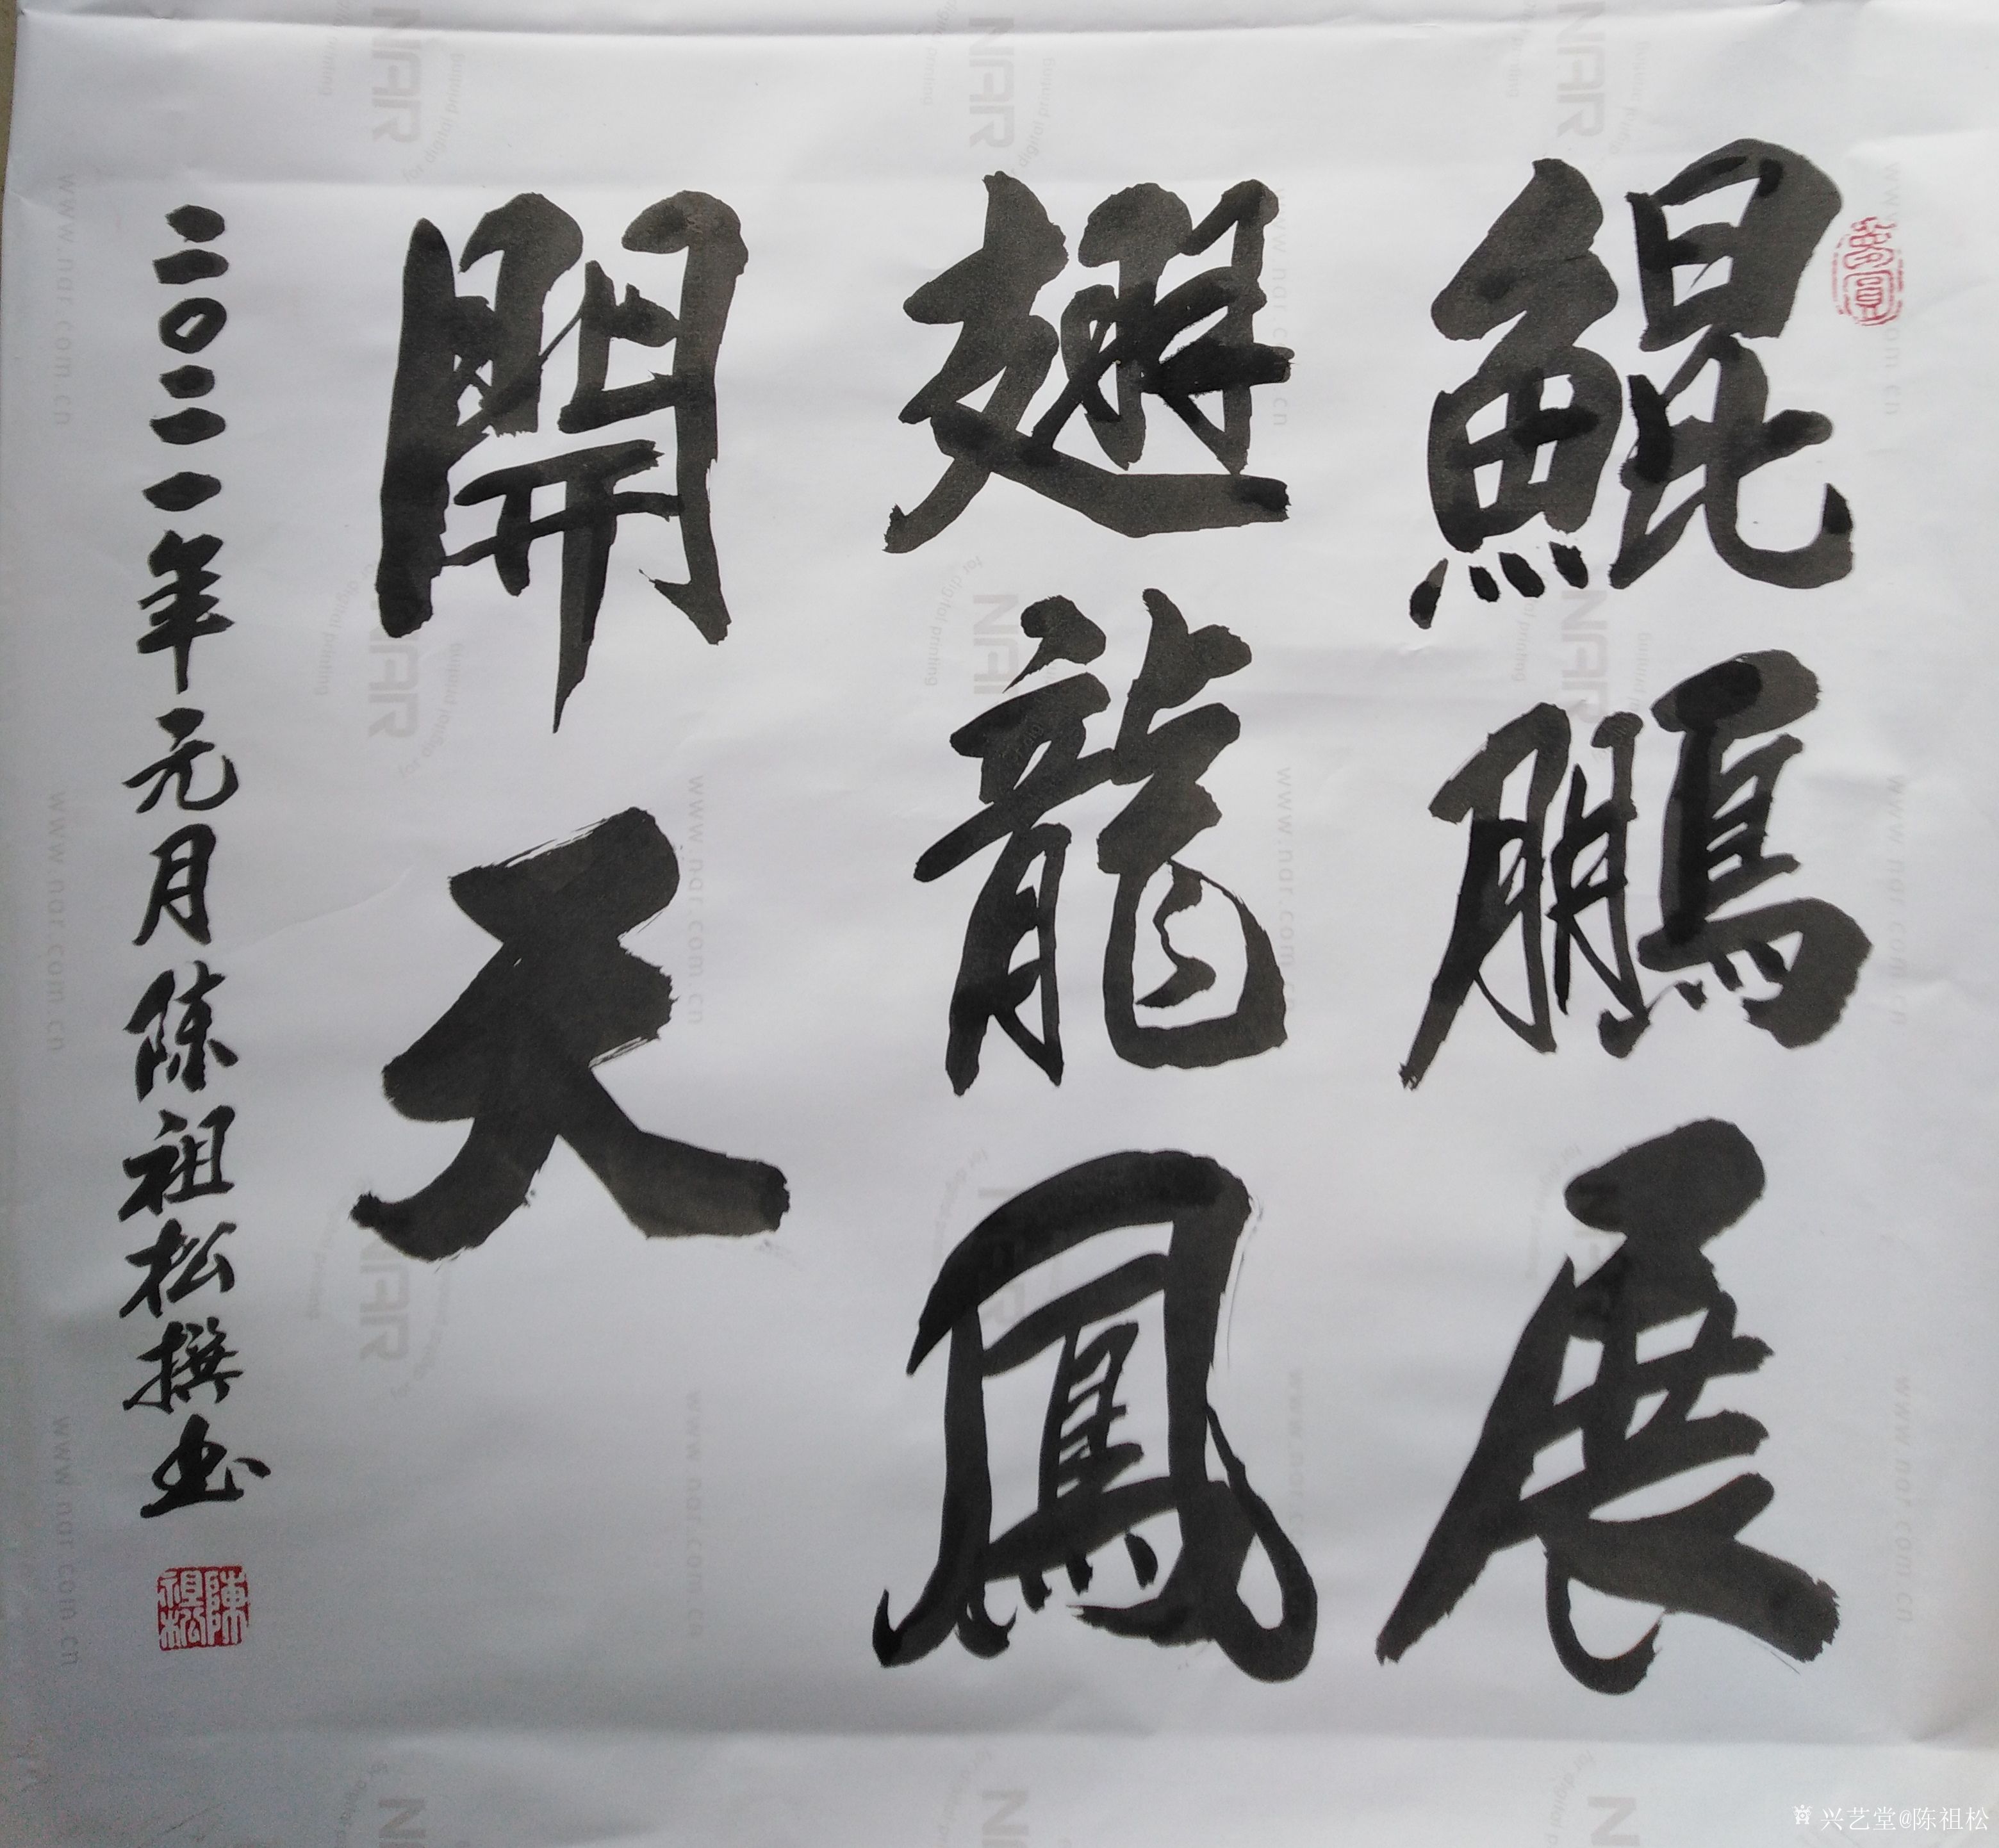 鯤鵬展
翅龍鳳
開天
二〇二一年元月陈祖松撰书
陳祖松
兴艺堂@陈祖松
NAR
for digital printing
www.nar.com.cn